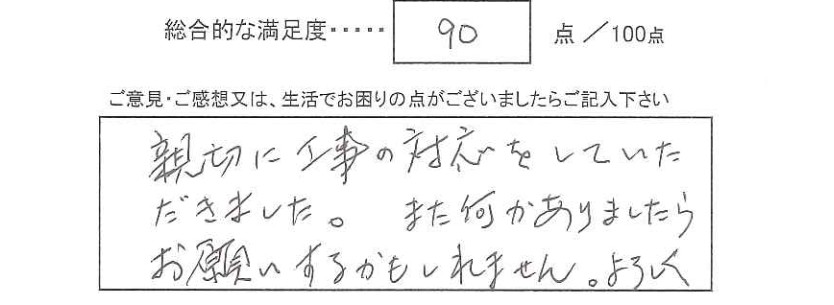 総合的な満足度・・・・・ 90 点 ／100点
ご意見・ご感想又は、生活でお困りの点がございましたらご記入下さい
親切に工事の対応をしていた
だきました。 また何かありましたら
お願いするかもしれません。よろしく